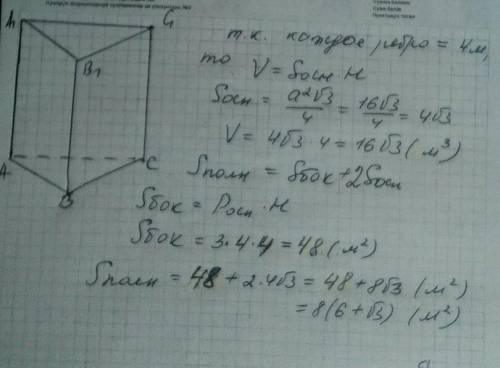 A₁ C₁
B₁
A C
B
т.к. каждое ребро = 4м,
то V = Sосн · H
Sосн = a²√3/4 = 16√3/4 = 4√3
V = 4√3 · 4 = 16√3 (м³)
Sполн = Sбок + 2Sосн
Sбок = Pосн · H
Sбок = 3 · 4 · 4 = 48 (м²)
Sполн = 48 + 2 · 4√3 = 48 + 8√3 (м²)
= 8(6 + √3) (м²)